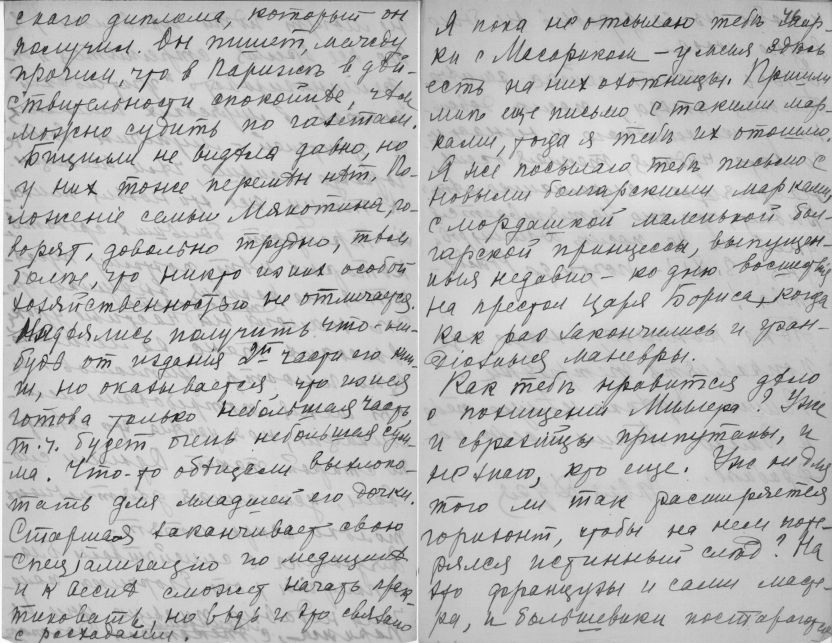 скаго диплома, который он
получил. Он пишет, между
прочим, что в Париже в дѣй-
ствительности спокойнѣе, чѣм
можно судить по газетам.
Бицилли не видѣла давно, но
у них тоже перемѣн нѣт. По-
ложеніе семьи Мякотина, го-
ворят, довольно трудно, тѣм
болѣе, что никто из них особой
хозяйственностью не отличается.
Надѣялись получить что-ни-
будь от изданія 2й части его кни-
ги, но оказывается что из нея
готова только небольшая часть,
т.ч. будет очень небольшая сум-
ма. Что-то обѣщали выхлопо-
тать для младшей его дочки.
Старшая заканчивает свою
спеціализацію по медицинѣ
и к весне сможет начать прак-
тиковать, но вѣдь и это связано
с расходами.
Я пока не отсылаю тебѣ мар-
ки с Масариком – у меня здѣсь
есть на них охотницы. Пришли
мнѣ еще письмо с такими мар-
ками, тогда я тебѣ их отошлю.
Я же посылаю тебѣ письмо с
новыми болгарскими марками
с мордашкой маленькой бол-
гарской принцессы, выпущен-
ныя недавно – ко дню восшествія
на престол Царя Бориса, когда
как раз закончились и гран-
діозные маневры.
Как тебѣ нравится дѣло
о похищеніи Миллера? Уже
и евразійцы припутаны, и
не знаю, кто еще. Уж не для
того ли так расширяется
горизонт, чтобы на нем поте-
рялся истинный слѣд? На
это французы и сами масте-
ра, и большевики постараются